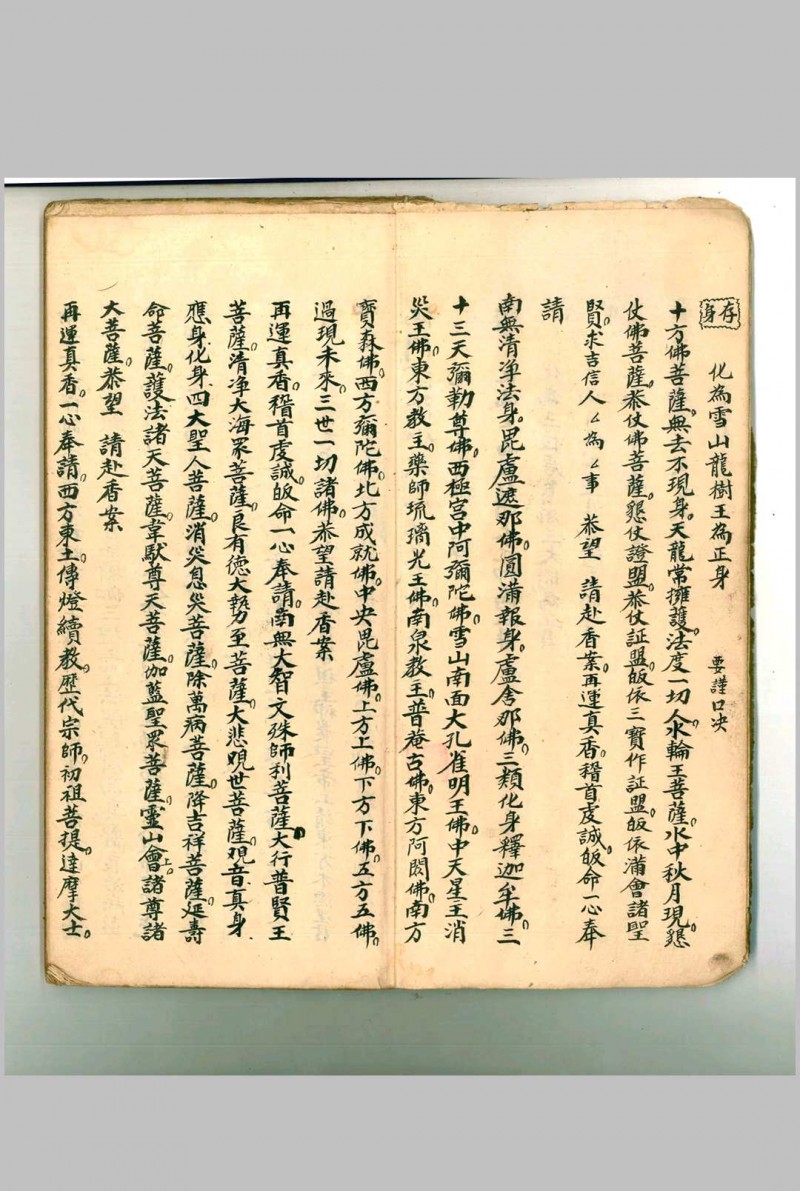 存身　化為雪山龍樹王為正身　要謹口决
十方佛菩薩。無去不現身。天龍常擁護。法度一切人。水輪王菩薩。水中秋月現。懇
仗佛菩薩。恭仗佛菩薩。懇仗證盟。恭仗証盟。皈依三寶作証盟。皈依蒲會諸聖
賢。求吉信人厶為厶事　恭望　請赴香案。再運真香。稽首虔誠。皈命一心奉
請
南無清净法身。毘盧遮那佛。圓滿報身。盧舍那佛。三類化身釋迦牟佛。三
十三天彌勒尊佛。西極宮中阿彌陀佛。雪山南面大孔雀明王佛。中天星主消
災王佛。東方教主。藥師琉璃光王佛。南泉教主。普菴古佛。東方阿閦佛。南方
寶森佛。西方彌陀佛。北方成就佛。中央毘盧佛。上方上佛。下方下佛。五方五佛。
過現未來。三世一切諸佛。恭望請赴香案
再運真香。稽首虔誠。皈命一心奉請。南無大智文殊師利菩薩。大行普賢王
菩薩。清净大海眾菩薩。良有德大勢至菩薩。大悲覌世菩薩。覌音真身
應身化身四大聖人菩薩。消災息災菩薩。除萬病菩薩。降吉祥菩薩。延壽
命菩薩。護法諸天菩薩。韋馱尊天菩薩。伽藍聖眾菩薩。靈山會上。諸尊諸
大菩薩。恭望　請赴香案
再運真香。一心奉請。西方東土。傳燈續教。歷代宗師。初祖菩提。達摩大士。